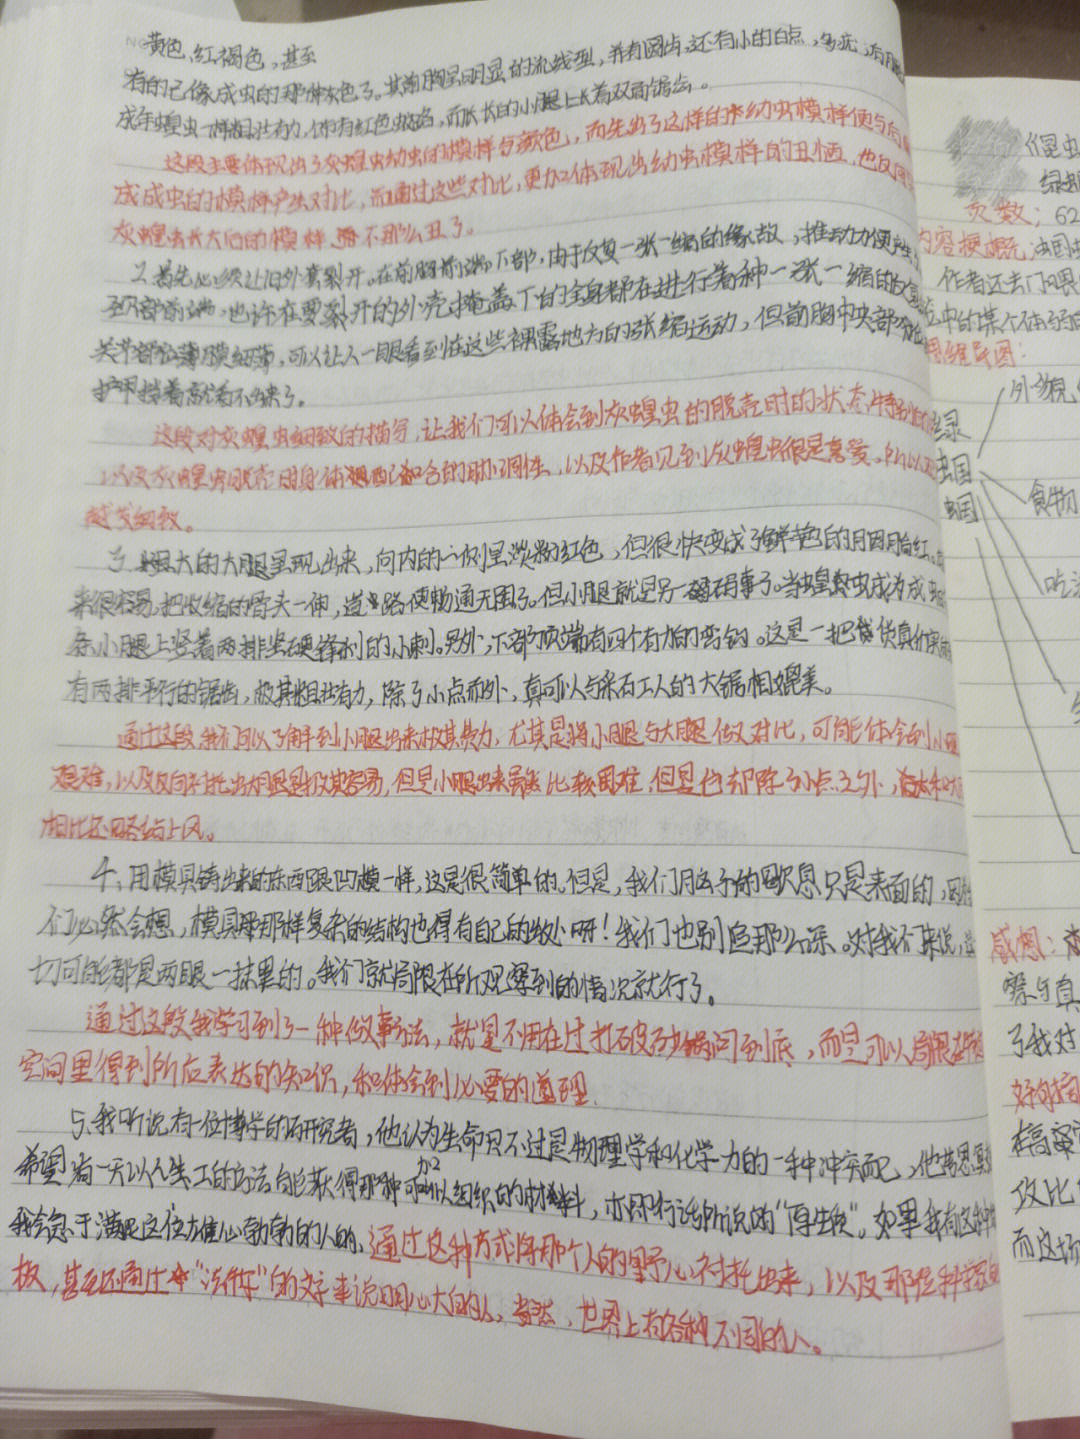 黄色、红褐色，甚至
有的已像成虫的那种灰色了。其前胸呈明显的流线型，并有圆齿，还有小的白点，多疣，有
成年蝗虫一样粗壮有力，饰有红色纹路，而长长的小腿上长着双面锯齿。
这段主要体现出了灰蝗虫幼虫的模样与颜色，而先出了这样的幼虫模样便与后
成成虫的模样产生对比，而通过这些对比，更加体现出幼虫模样的丑恶，也反
灰蝗虫长大后的模样 不那么丑了。
2.首先必须让旧外套裂开。在前胸前端下部，由于反复一张一缩的缘故，推动力便产生
颈部前端，也许在要裂开的外壳掩盖下的全身都在进行着种一张一缩的
关节部位薄膜细薄，可以让人一眼看到在这些裸露地方的张缩运动，但前胸中央部
护甲挡着就看不出来了。
这段对灰蝗虫细致的描写，让我们可以体会到灰蝗虫的脱壳时的状态，
以及灰蝗虫脱壳时身体相配和合的协调性，以及作者见到灰蝗虫很是喜爱，所以
越发细致。
3.粗大的大腿呈现出来，向内的一侧呈淡粉红色，但很快变成了鲜艳的胭脂红。
来很容易，把收缩的骨头一伸，道路便畅通无阻了。但小腿就是另一码事了。当蝗虫成为成虫
条小腿上竖着两排坚硬锋利的小刺。另外，下部顶端有四个有力的弯钩。这是一把货真价实
有两排平行的锯齿，极其粗壮有力，除了小点而外，真可以与采石工人的大锯相媲美。
通过这段我们可以了解到小腿出来极其费力，尤其是将小腿与大腿做对比，可能体会到小腿
艰难，以及反向衬托出大腿是极其容易，但是小腿出来虽然比较困难，但是也却除了小点之外，
相比还略占上风。
4、用模具铸出来的东西跟凹模一样，这是很简单的。但是，我们脑子的歇息只是表面的，因
们必然会想，模具母那样复杂的结构也得有自己的出处呀！我们也别追那么深。对我们来说，
切可能都是两眼一抹黑的。我们就局限在所观察到的情况就行了。
通过这段我学习到了一种做事方法，就是不用在过打破砂锅问到底，而是可以局限在
空间里得到所应表达的知识，和体会到必要的道理.
5.我听说有一位博学的研究者，他认为生命只不过是物理学和化学力的一种冲突而已，他苦思
希望有一天以人工的方法能获得那种可加以组织的材料，亦即行话所说的“原生质”。如果我有这种
我会急于满足这位雄心勃勃的人的，通过这种方式将那个人的野心衬托出来，以及那些科学
板，甚至还通过“活生生”的文字来说明心大的人，当然，世界上有各种不同的人。
《昆虫
绿
页数：62
内容梗概：法国
作者还去门喂
中的某个体弱
思维导图：
外貌
绿
虫国
蝈
食物
吃
感想：本
察与真
了我对
好的描
在高密
攻比
而这场